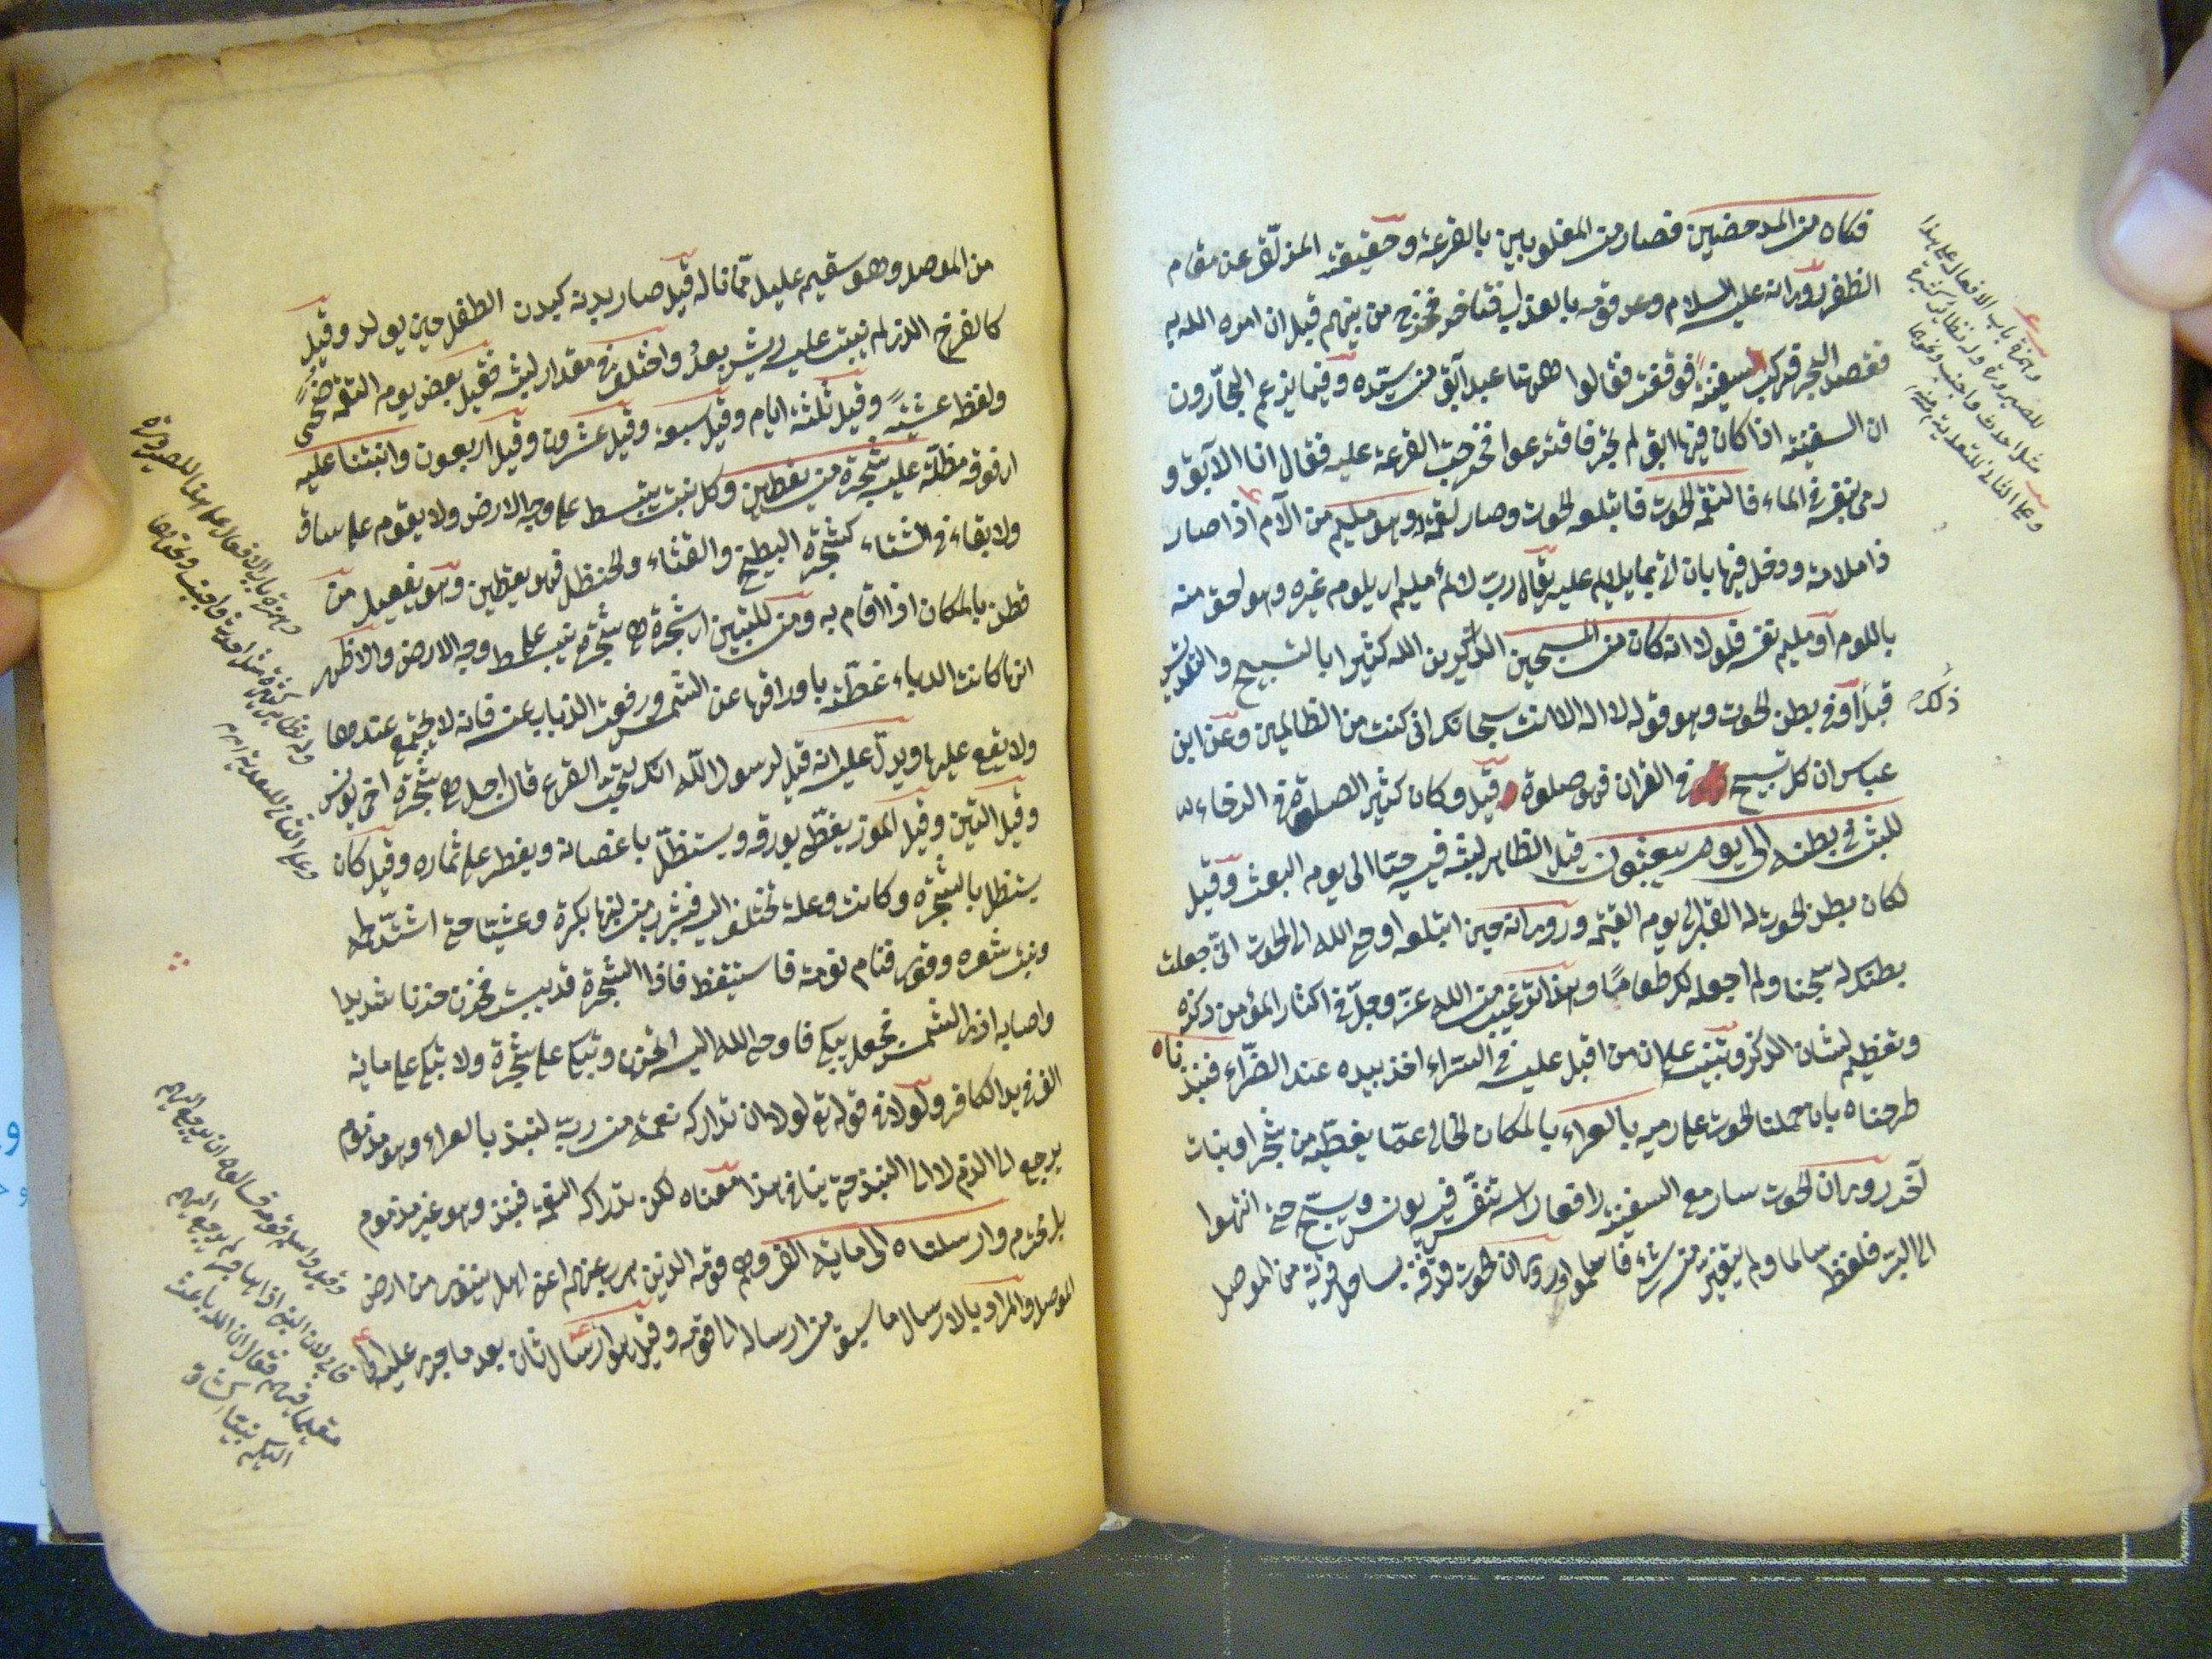 فكان من المدحضين فصار من المغلوبين بالقرعة وحقيقته المزلق عن مقام
الظفر روى انه عليه السلام وعد قومه بالعذاب فتأخر فخرج من بينهم قبل ان امره الله به
فقصد البحر فركب السفينة فوقفت فقالوا ههنا عبد آبق من سيده وفيما يزعم البحارون
ان السفينة اذا كان فيها ابق لم تجر فاقترعوا فخرجت القرعة عليه فقال انا الآبق و
رمى بنفسه فى الماء فالتقمه الحوت فابتلعه الحوت وصار لقمة له وهو مليم من الآم اذا صار
ذا ملامة ودخل فيها بان اتى بما يلام عليه يقال رب لائم مليم اى يلوم غيره وهو احق منه
باللوم او مليم نفسه فلولا انه كان من المسبحين الذاكرين الله كثيرا بالتسبيح والتقديس
قبل او فى بطن الحوت وهو قوله لا اله الا انت سبحانك انى كنت من الظالمين وعن ابن
ذلك
عباس ان كل تسبيح فى القران فهو صلوة قيل وكان كثير الصلوة فى الرخاء
للبث فى بطنه الى يوم يبعثون قيل الظاهر لبثه فيه حيا الى يوم البعث وقيل
لكان بطن الحوت له القبر الى يوم القيمة وروى انه حين ابتلعه اوحى الله الى الحوت انى جعلت
بطنك له سجنا ولم اجعله لك طعاما وهذا ترغيب من الله عز وجل فى اكثار المؤمن ذكره
وتعظيم لشان الذكر وتنبيه على ان من اقبل عليه فى السراء اخذ بيده عند الضراء فنبذناه
طرحناه بان حملنا الحوت على رميه بالعراء بالمكان الخالى عما يغطيه من شجر او نبات
آخر روى ان الحوت سار مع السفينة رافعا راسه تنفس فيه يونس ويسبح حتى انتهوا
الى البر فلفظه سالما ولم يتغير منه شىء فاسلموا وروى ان الحوت قذفه بساحل قرية من الموصل
وهمزة باب الافعال على هذا
للصيرورة وله نظائر كثيرة
مثل احدث واجنب ونحوهما
وعلى الثانى للتعدية منه
من الموصل وهو سقيم عليل مما ناله قيل صار بدنه كبدن الطفل حين يولد وقيل
كالفرخ الذى لم ينبت عليه ريش بعد واختلف فى مقدار لبثه فقيل بعض يوم التقمه ضحى
ولفظه عشية وقيل ثلثة ايام وقيل سبعة وقيل عشرون وقيل اربعون وانبتنا عليه
اى فوقه مظلة عليه شجرة من يقطين وكل نبت ينبسط على وجه الارض ولا يقوم على ساق
ولا بقاء فى الشتاء كشجرة البطيخ والقثاء والحنظل فهو يقطين وهو يفعيل من
قطن بالمكان اذا اقام به ومن للتبيين اى شجرة هى شجرة تنبسط على وجه الارض والاظهر
انها كانت الدباء غطته باوراقها عن الشمس ورفعت الذباب عنه فانه لا يجتمع عندها
ولا يقع عليها ويدل عليه انه قيل لرسول الله انك لتحب القرع قال اجل هى شجرة اخى يونس
وقيل التين وقيل الموز يغطى بورقه ويستظل باغصانه ويفطر على ثماره وقيل كان
يستظل بالشجرة وكانت وعلة تختلف اليه فيشرب من لبنها بكرة وعشيا حتى اشتد لحمه
ونبت شعره وقوى فنام نومة فاستيقظ فاذا الشجرة قد يبست فحزن حزنا شديدا
واصابه اذى الشمس فجعل يبكى فاوحى الله اليه اتحزن وتبكى على شجرة ولا تبكى على ماية
الف فى يد الكافر ولولا فى قوله تع لولا ان تداركه نعمة من ربه لنبذ بالعراء وهو مذموم
يرجع الى الذم لا الى النبذ حتى ينافى هذا معناه لكن تداركه النعمة فنبذ وهو غير مذموم
بل محترم وارسلناه الى ماية الف وهم قومه الذين هرب عنهم اعنى اهل نينوى من ارض
الموصل والمراد بالارسال ما سبق من ارساله الى قومه وقيل هو ارسال ثان بعد ما جرى عليه
وهمزة باب الافعال على هذا للصيرورة
وله نظائر كثيرة مثل احدث واجنب ونحوهما
وعلى الثانى للتعدية
وقيل واسلم قومه فسالوه ان يرجع اليهم
فابى لان النبى اذا هاجر لم يرجع اليهم
مقيما فيهم فقال ان الله باعث
اليكم نبيا كشاف